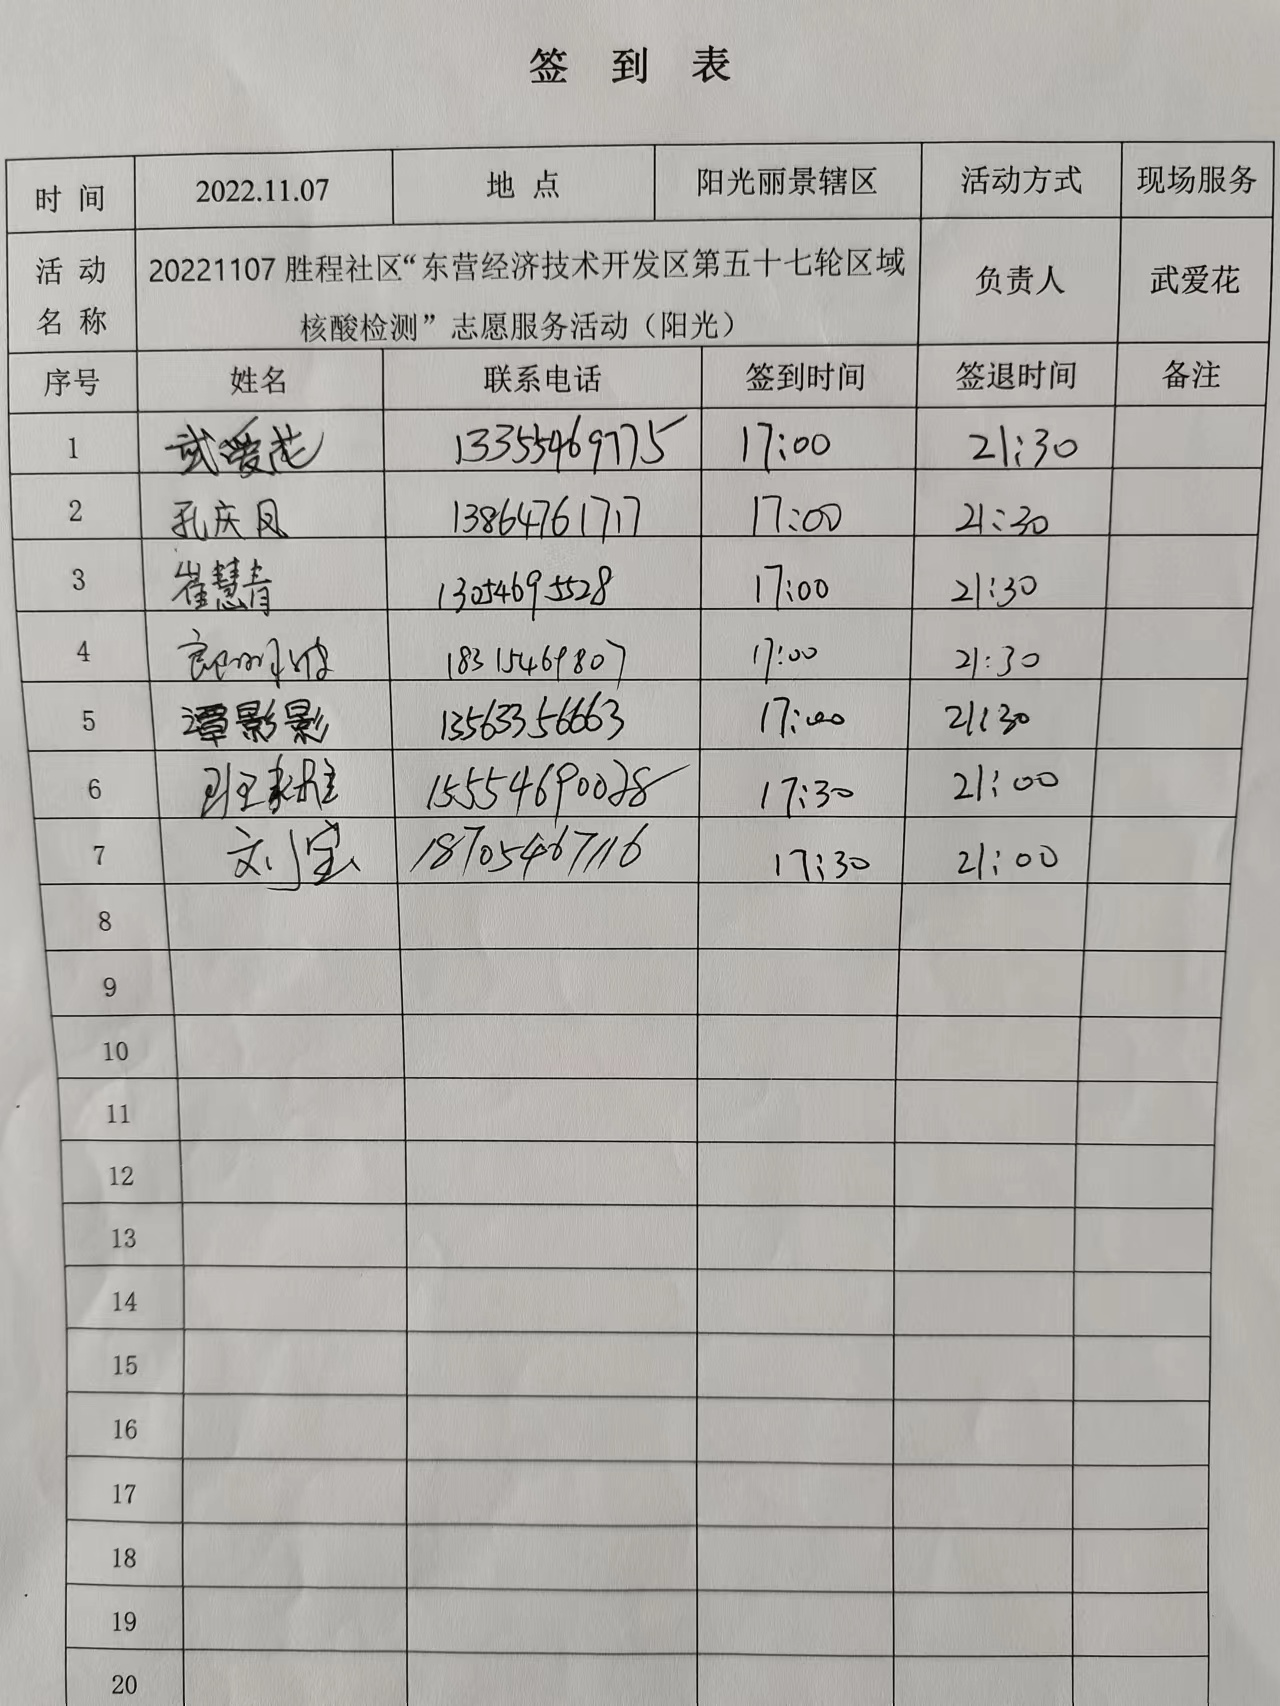 签 到 表
时 间 2022.11.07 地 点 阳光丽景辖区 活动方式 现场服务
活 动 名 称 20221107 胜程社区“东营经济技术开发区第五十七轮区域
核酸检测”志愿服务活动（阳光） 负责人 武爱花
序号 姓名 联系电话 签到时间 签退时间 备注
1 武爱花 13355469775 17:00 21:30
2 孔庆凤 13864761717 17:00 21:30
3 崔慧青 13054695528 17:00 21:30
4 18315469807 17:00 21:30
5 谭影影 13563356663 17:00 21:30
6 17:30 21:00
7 刘宝 18705467116 17:30 21:00
8
9
10
11
12
13
14
15
16
17
18
19
20